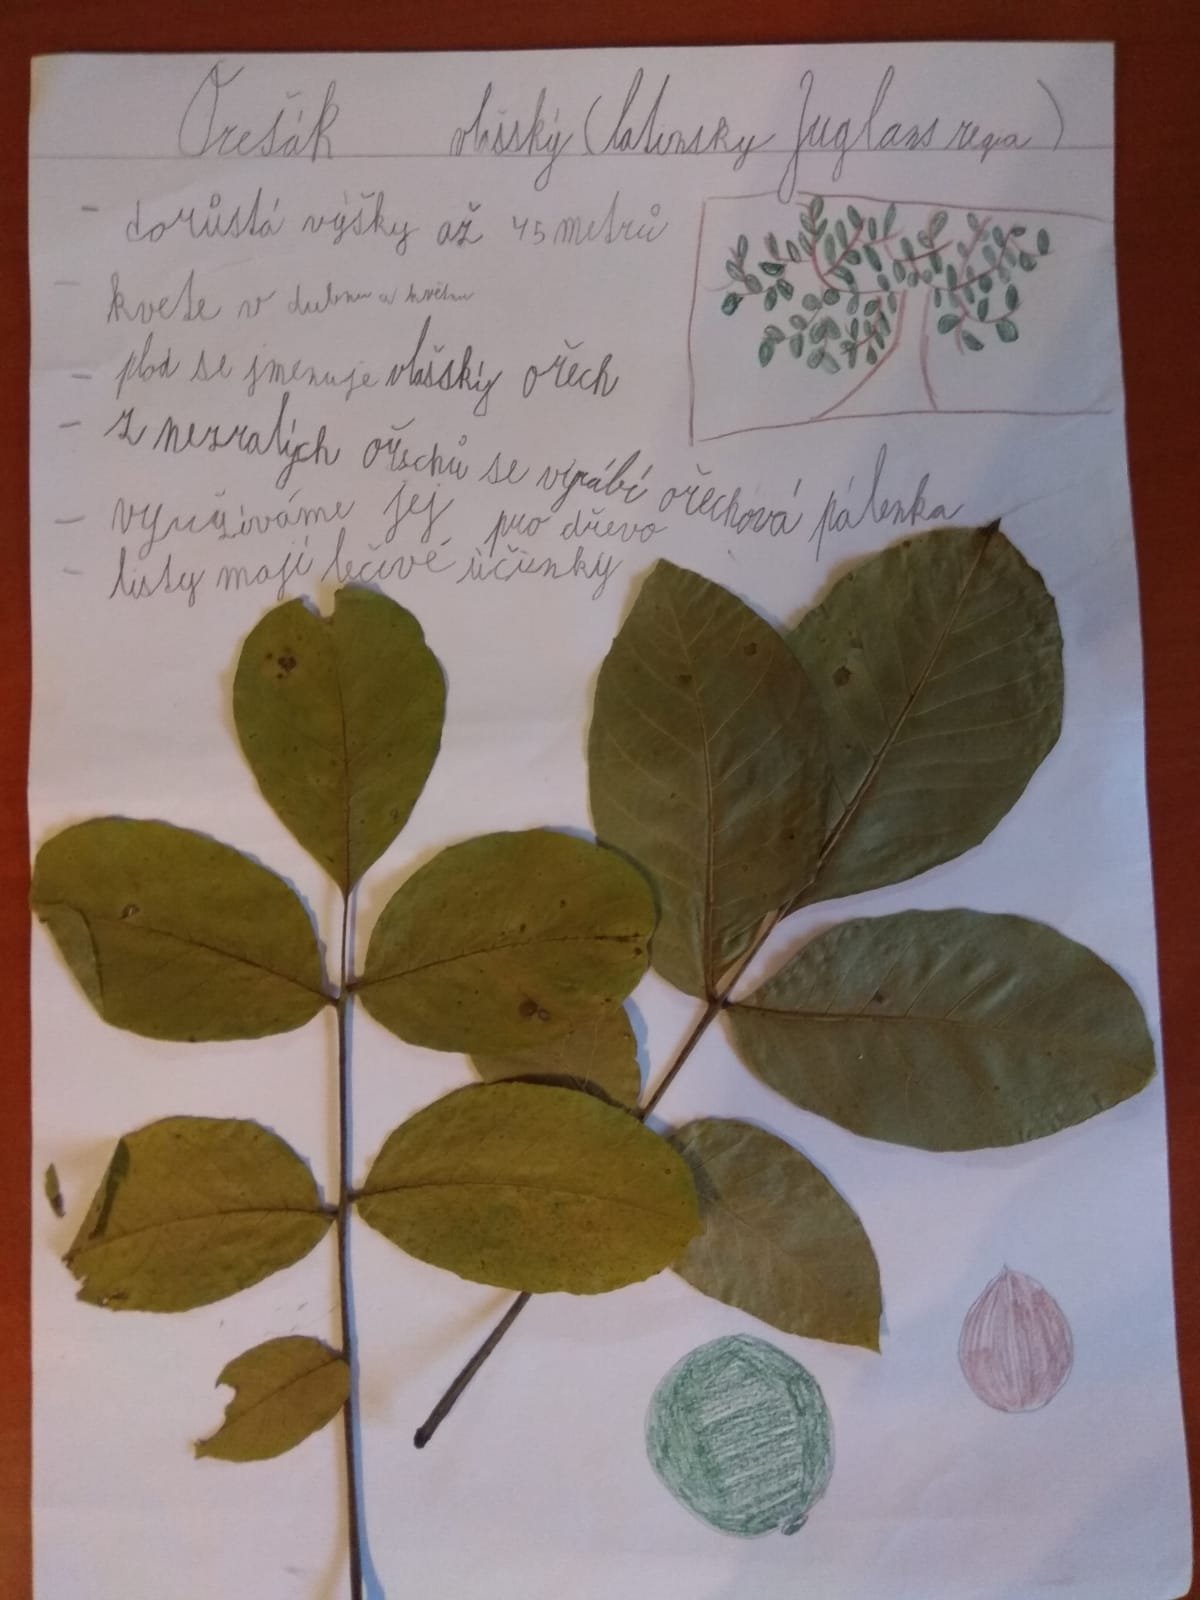 Ořešák vlašský (latinsky Juglans regia)
- dorůstá výšky až 45 metrů
- kvete v dubnu a květnu
- plod se jmenuje vlašský ořech
- z nezralých ořechů se vyrábí ořechová pálenka
- využíváme jej pro dřevo
- listy mají léčivé účinky